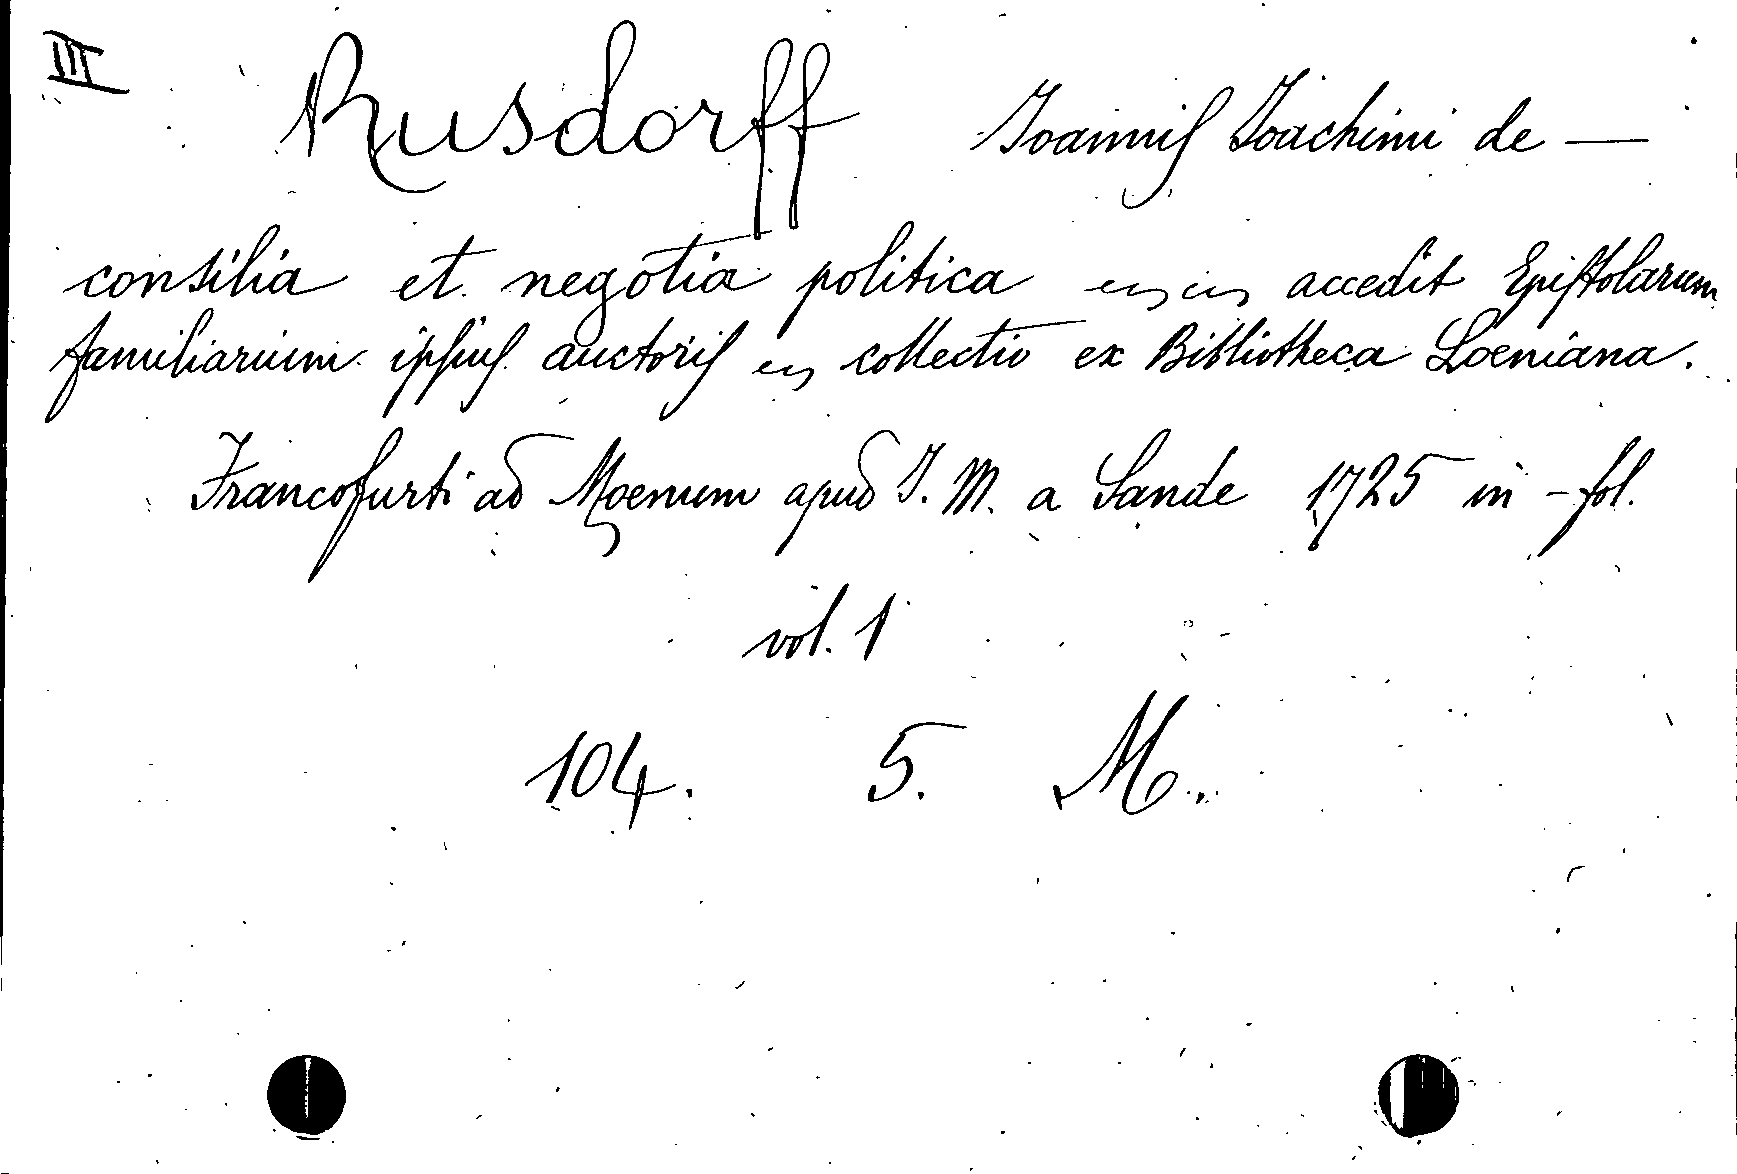 III
Rusdorff Ioannis Ioachimi de —
consilia et negotia politica accedit Epistolarum
familiarium ipsius auctoris collectio ex Bibliotheca Loeniana.
Francofurti ad Moenum apud I. M. a Sande 1725 in-fol.
vol. 1
104. 5. M.